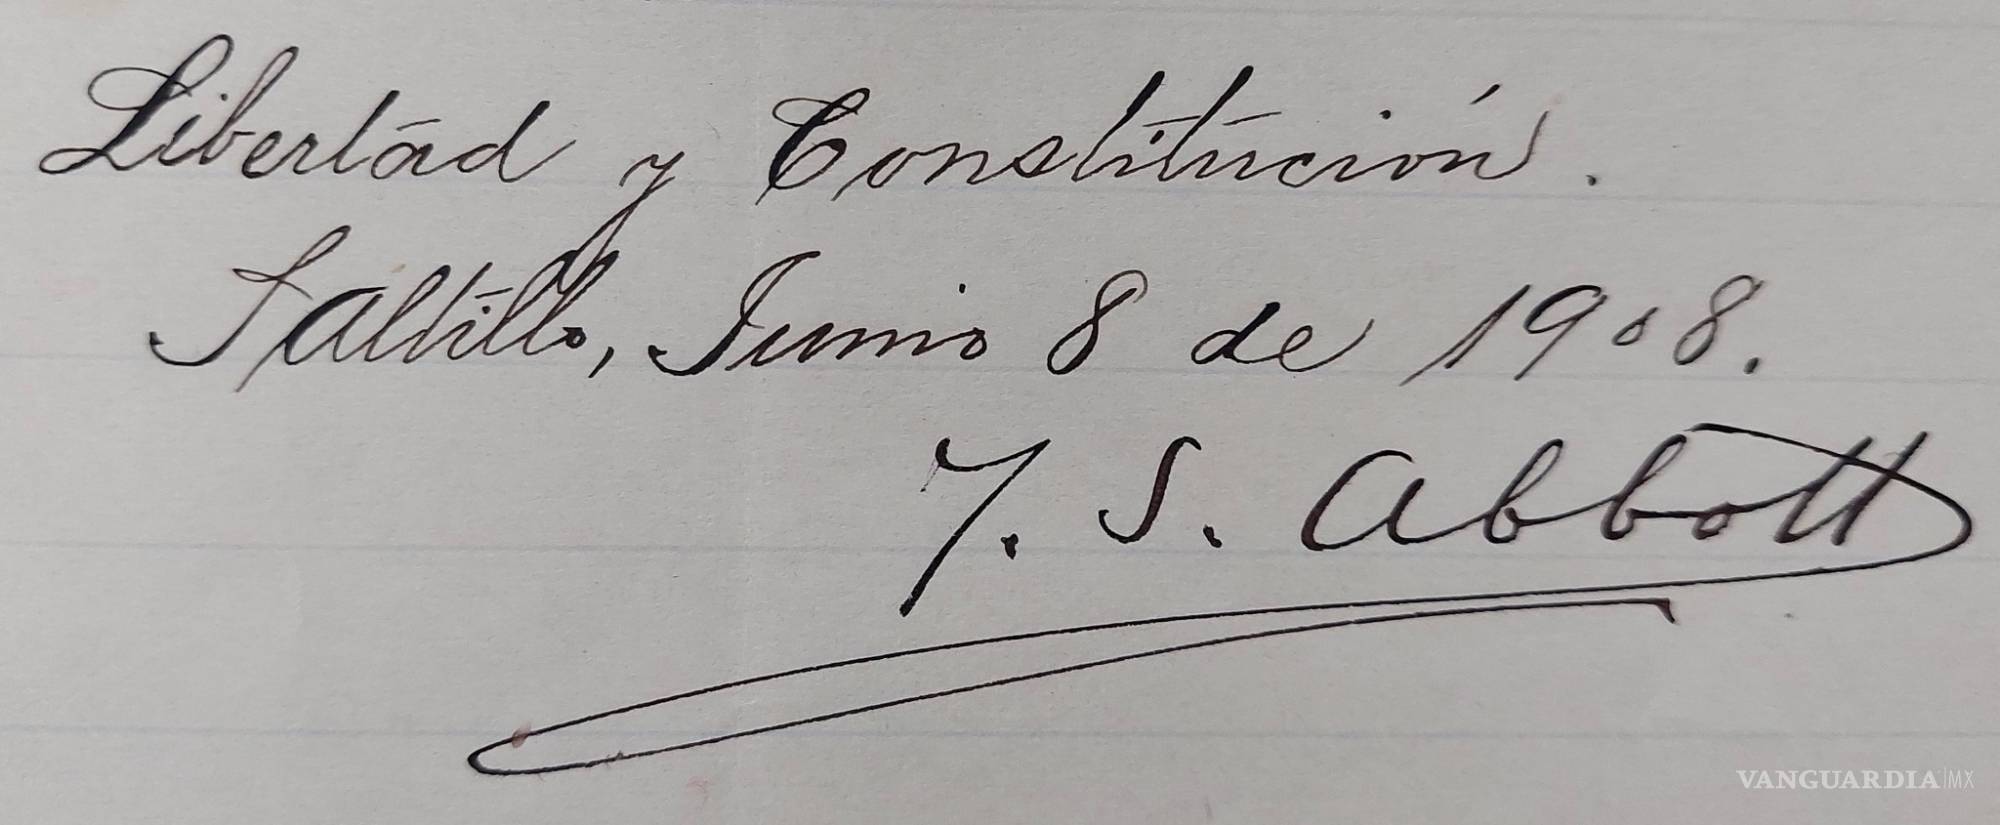 Libertad y Constitución.
Saltillo, Junio 8 de 1908.
T. S. Abbott
VANGUARDIA|MX